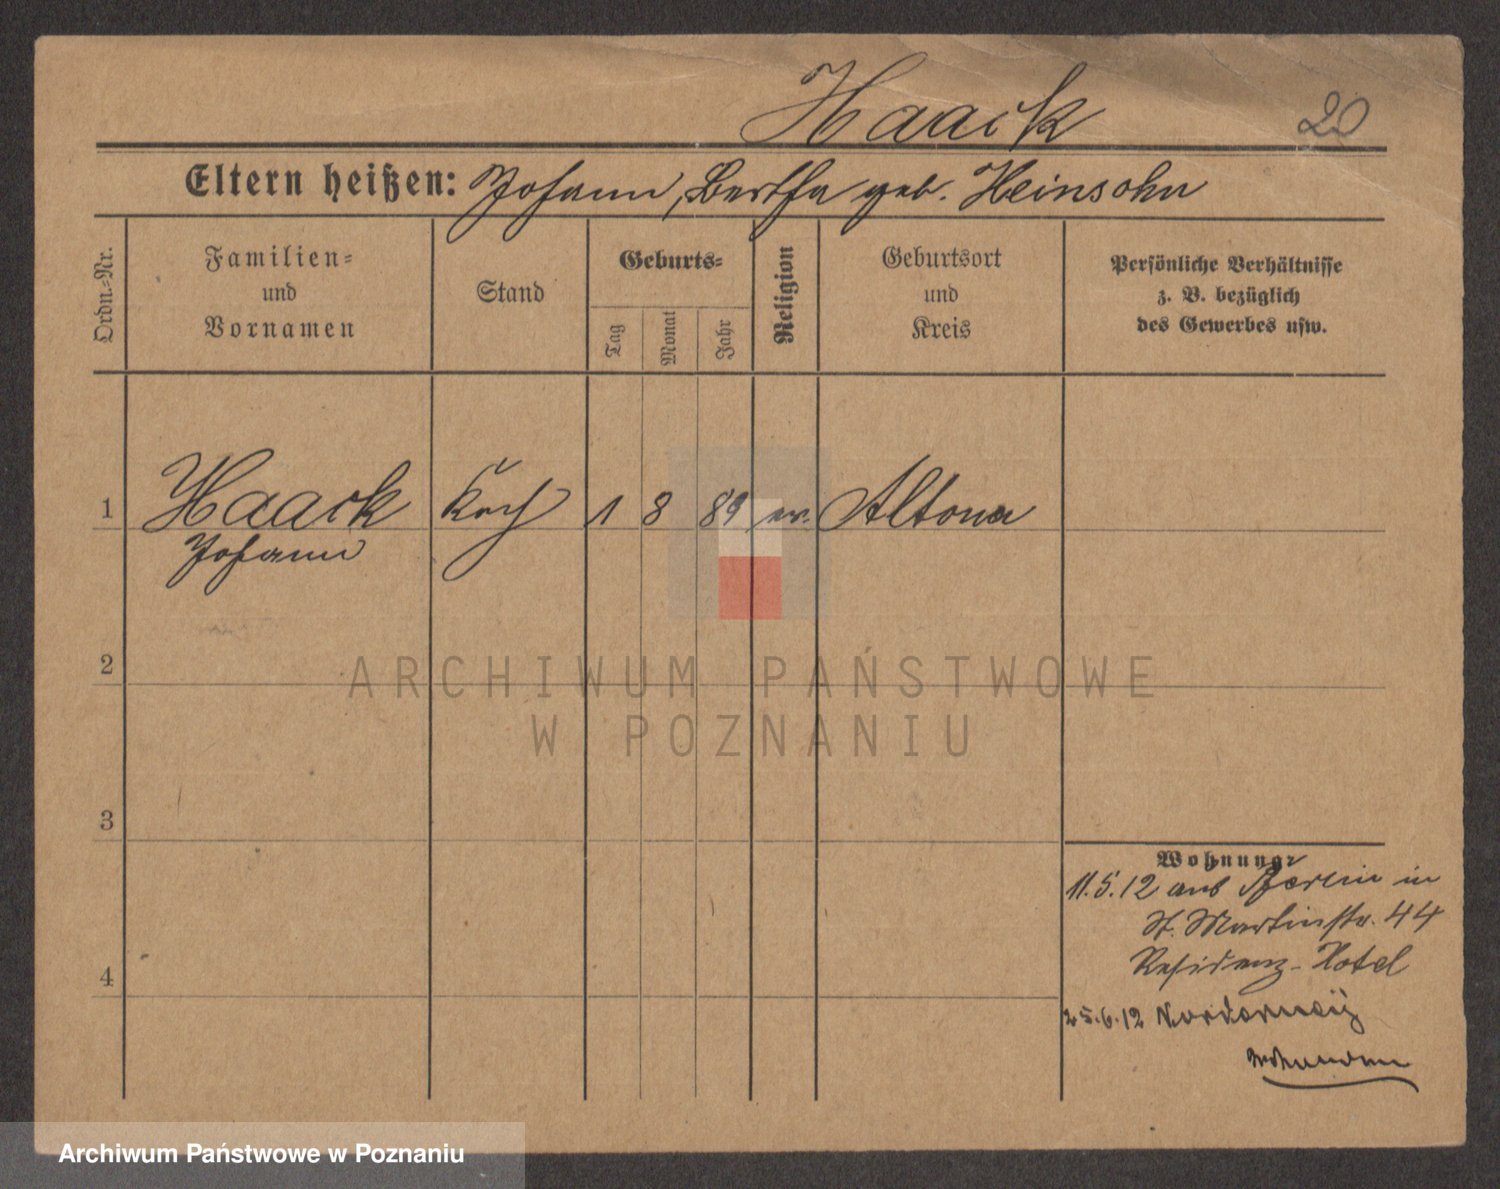 Haack 20
Eltern heißen: Johann, Bertha geb. Heinsohn
Ordn.-Nr.
Familien-
und
Vornamen
Stand
Geburts-
Tag
Monat
Jahr
Religion
Geburtsort
und
Kreis
Persönliche Verhältnisse
z. B. bezüglich
des Gewerbes usw.
1 Haack Koch 1 8 89 ev. Altona
Johann
2
ARCHIWUM PAŃSTWOWE
W POZNANIU
3
Wohnung:
11.5.12 aus Berlin in
St. Martinstr. 44
Residenz-Hotel
4
25.6.12 Norderneÿ
Archiwum Państwowe w Poznaniu